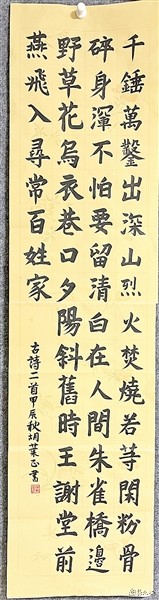 千錘萬鑿出深山烈火焚燒若等閑粉骨
碎身渾不怕要留清白在人間朱雀橋邊
野草花烏衣巷口夕陽斜舊時王謝堂前
燕飛入尋常百姓家
古詩二首甲辰秋胡葉正書